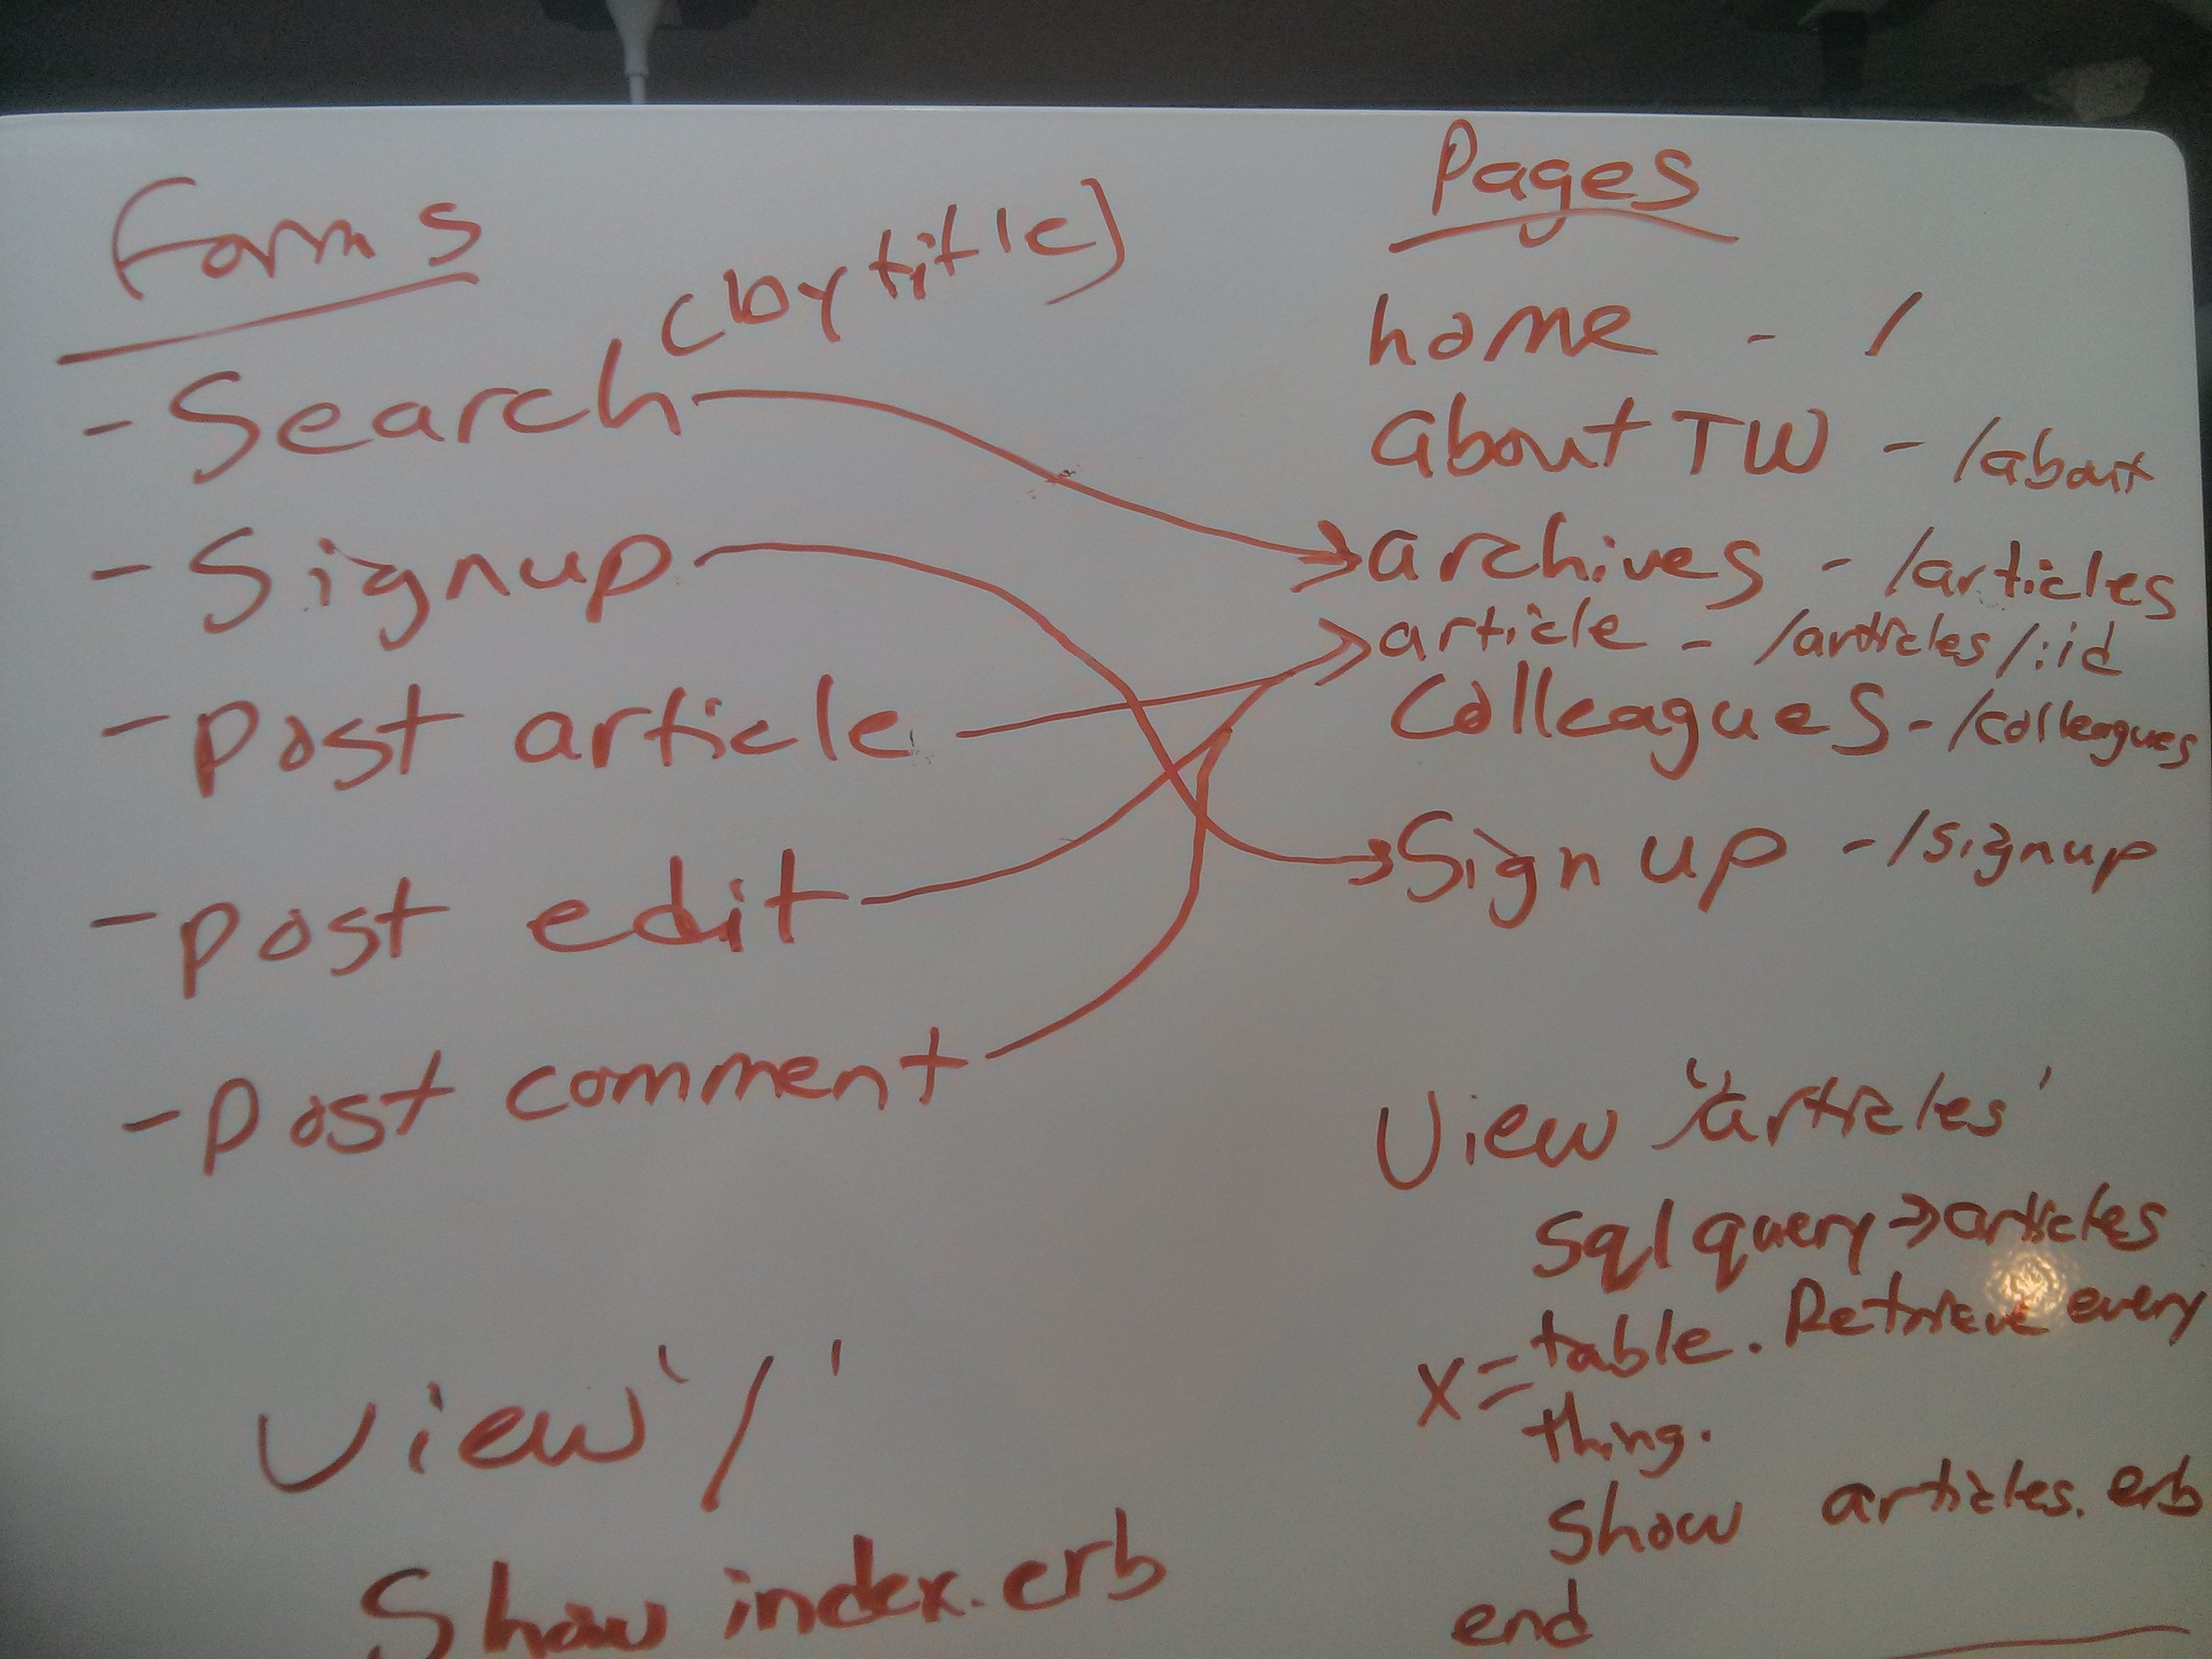 Forms
- Search (by title)
- Signup
- post article
- post edit
- post comment
View '/'
Show index.erb
Pages
home - /
about TW - /about
archives - /articles
article - /articles/:id
Colleagues - /colleagues
Sign up - /signup
View 'articles'
sql query → articles
x = table. Retrieve every
thing.
Show articles.erb
end